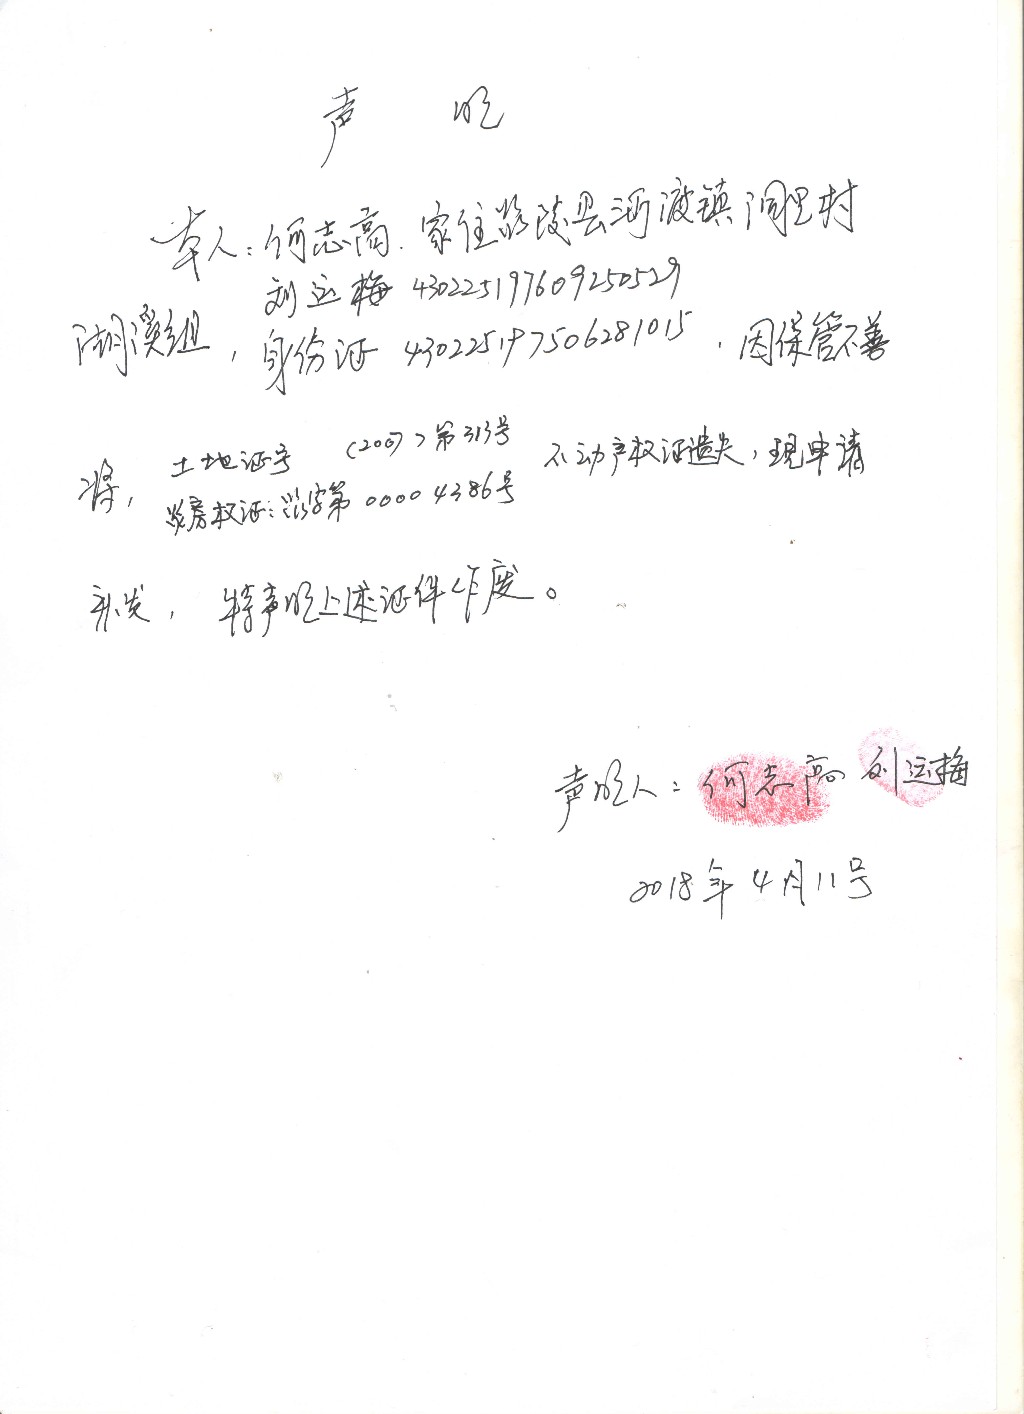 声 明
本人：何志高、家住炎陵县河渡镇洞里村
刘运梅 430225197609250529
湖溪组，身份证 430225197506281015，因保管不善
土地证号 (2007)第313号
将， 不动产权证遗失，现申请
炎房权证：炎字第00004386号
补发，特声明上述证件作废。
声明人：何志高 刘运梅
2018年4月11号